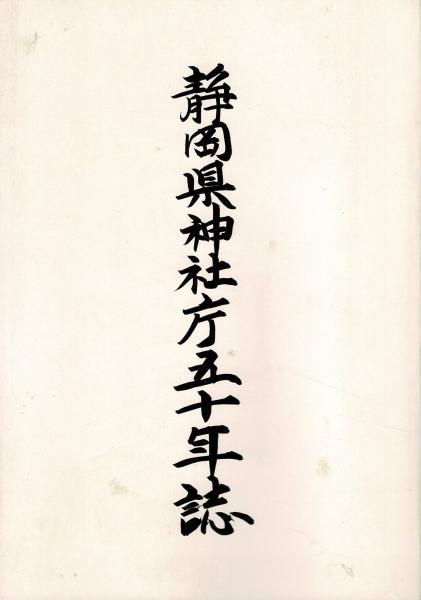 静岡県神社庁五十年誌